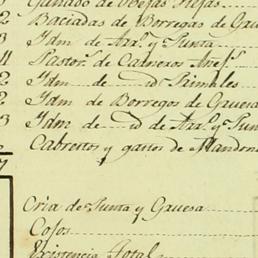 Ganado de Obejas Viejas
2 Baciadas de Borregas de Gau
3 Idm de Arr.ˢ y Punta
4 Pastor.ˢ de Carneros
2 Idm de id Primales
2 Idm de Borregos de Gauesa
3 Idm de id de Arr.ˢ y Pun
Cabreros y gattos de Mandon
7
Cria de Punta y Gauesa
Cojos
Existencia Total